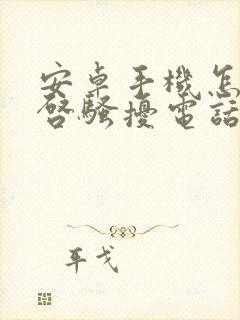 安卓手機怎
啓騷擾電話
耳戈